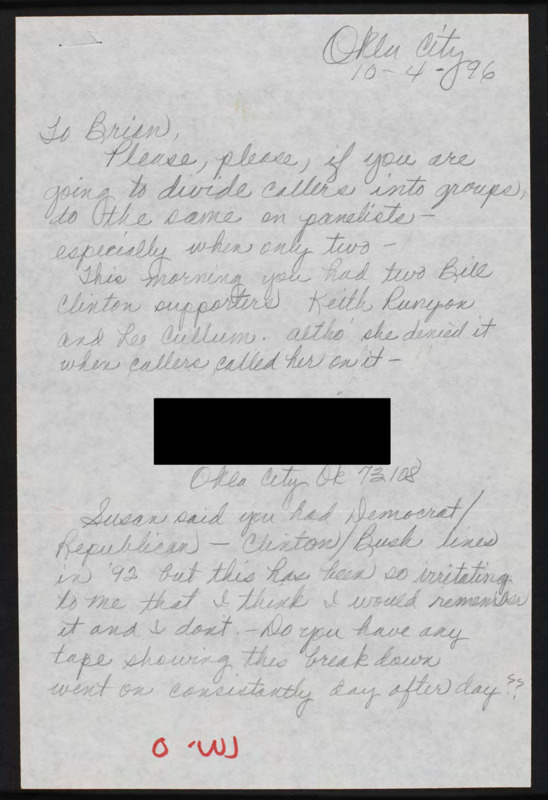 Okla City
10-4-96
To Brian,
Please, please, if you are
going to divide callers into groups,
do the same on panelists -
especially when only two -
This morning you had two Bill
Clinton supporters Keith Runyon
and Lee Cullum. altho' she denied it
when callers called her on it -
Okla City, Ok 73108
Susan said you had Democrat/
Republican - Clinton/Bush lines
in '92 but this has been so irritating
to me that I think I would remember
it and I dont. - Do you have any
tape showing this break down
went on consistantly day after day??